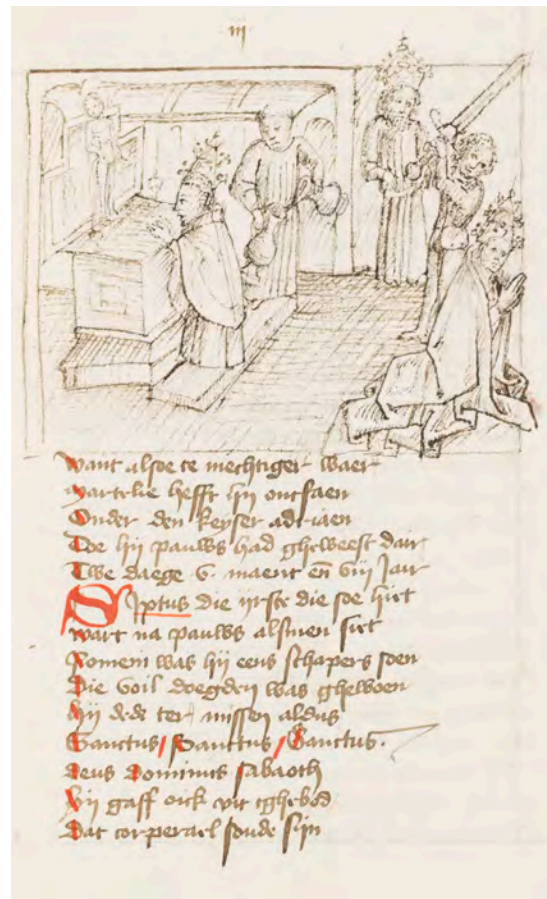 iij
Want alsoe te mechtiger waer
Martelie hefft hij ontfaen
Onder den keyser adriaen
Doe hij pauws had gheweest dair
Twe daege v. maent en̄ viij Jair
Sixtus die yrste die soe hiet
Wart na pauws alsmen siet
Romein was hij eens schapers soen
Die voil doegden was ghewoen
Hij dede ter missen aldus
Sanctus / Sanctus / Sanctus.
deus dominus sabaoth
Hij gaff oick vit tghebod
Dat corperael soude sijn